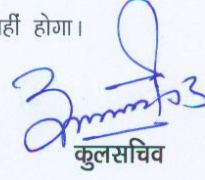 हीं होगा।
कुलसचिव